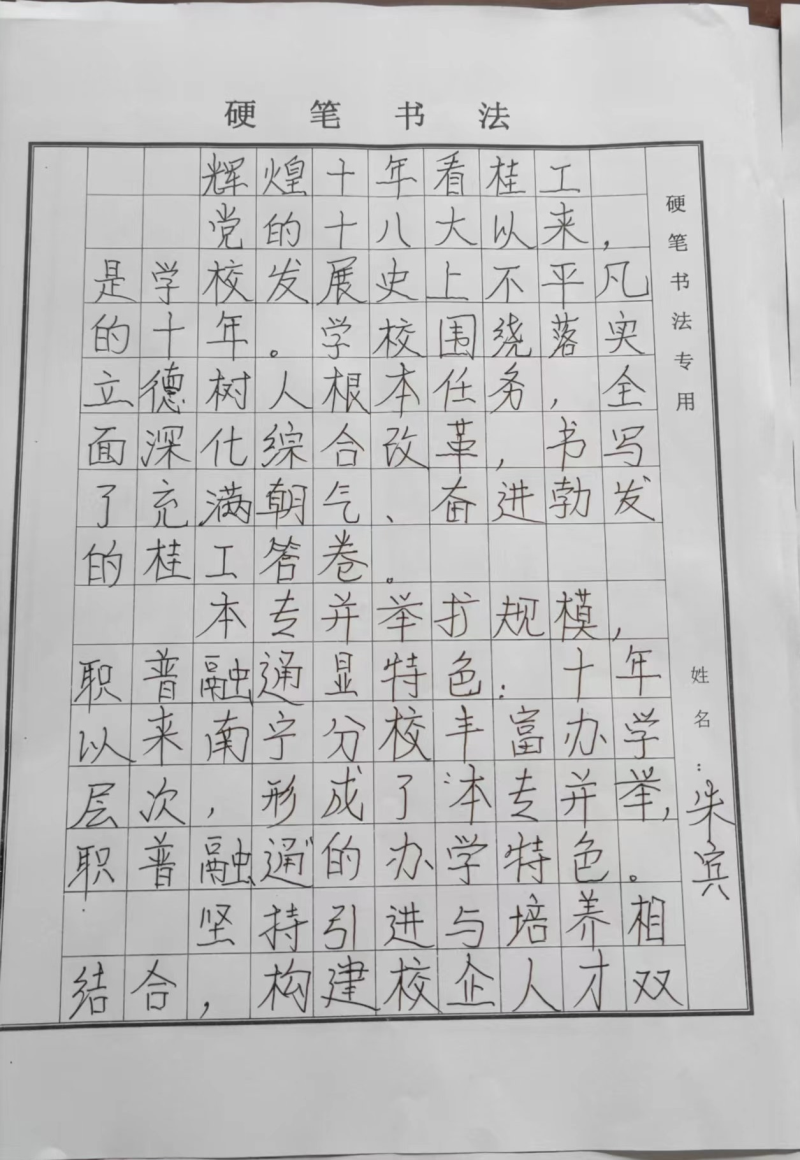 硬笔书法
辉煌十年看桂工
党的十八大以来，
是学校发展史上不平凡
的十年。学校围绕落实
立德树人根本任务，全
面深化综合改革，书写
了充满朝气、奋进勃发
的桂工答卷。
本专并举扩规模，
职普融通显特色：十年
以来南宁分校丰富办学
层次，形成了“本专并举，
职普融通”的办学特色。
坚持引进与培养相
结合，构建校企人才双
硬笔书法专用
姓名：朱宾